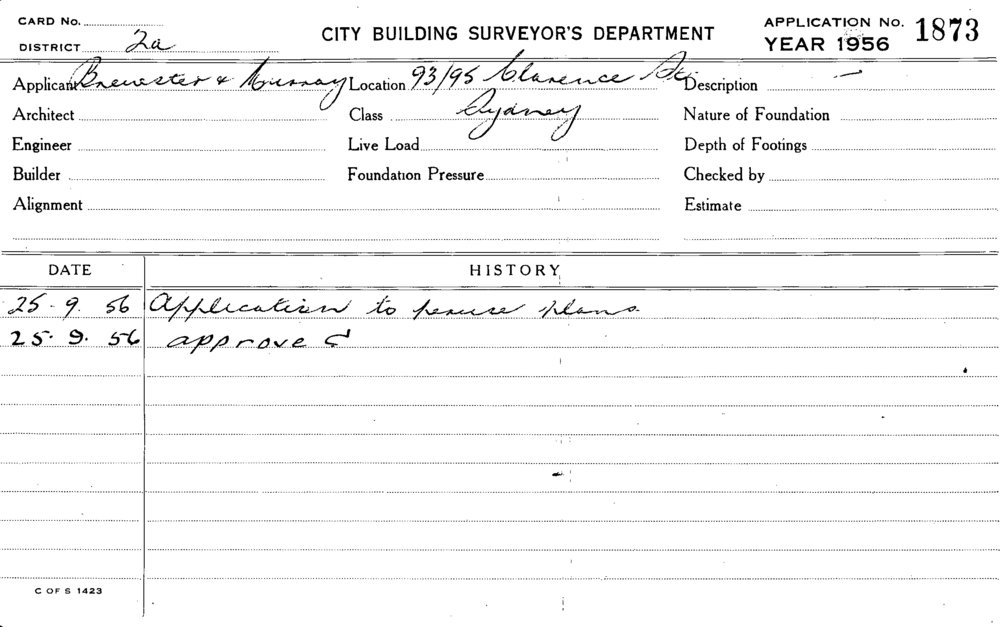 CARD No.
DISTRICT 2a
CITY BUILDING SURVEYOR'S DEPARTMENT
APPLICATION No. 1873
YEAR 1956
Applicant Brewester & Murray Location 93/95 Clarence St, Description —
Architect Class Sydney Nature of Foundation
Engineer Live Load Depth of Footings
Builder Foundation Pressure Checked by
Alignment Estimate
DATE HISTORY
25-9. 56 Application to peruse plans.
25.9. 56 approved
C OF S 1423